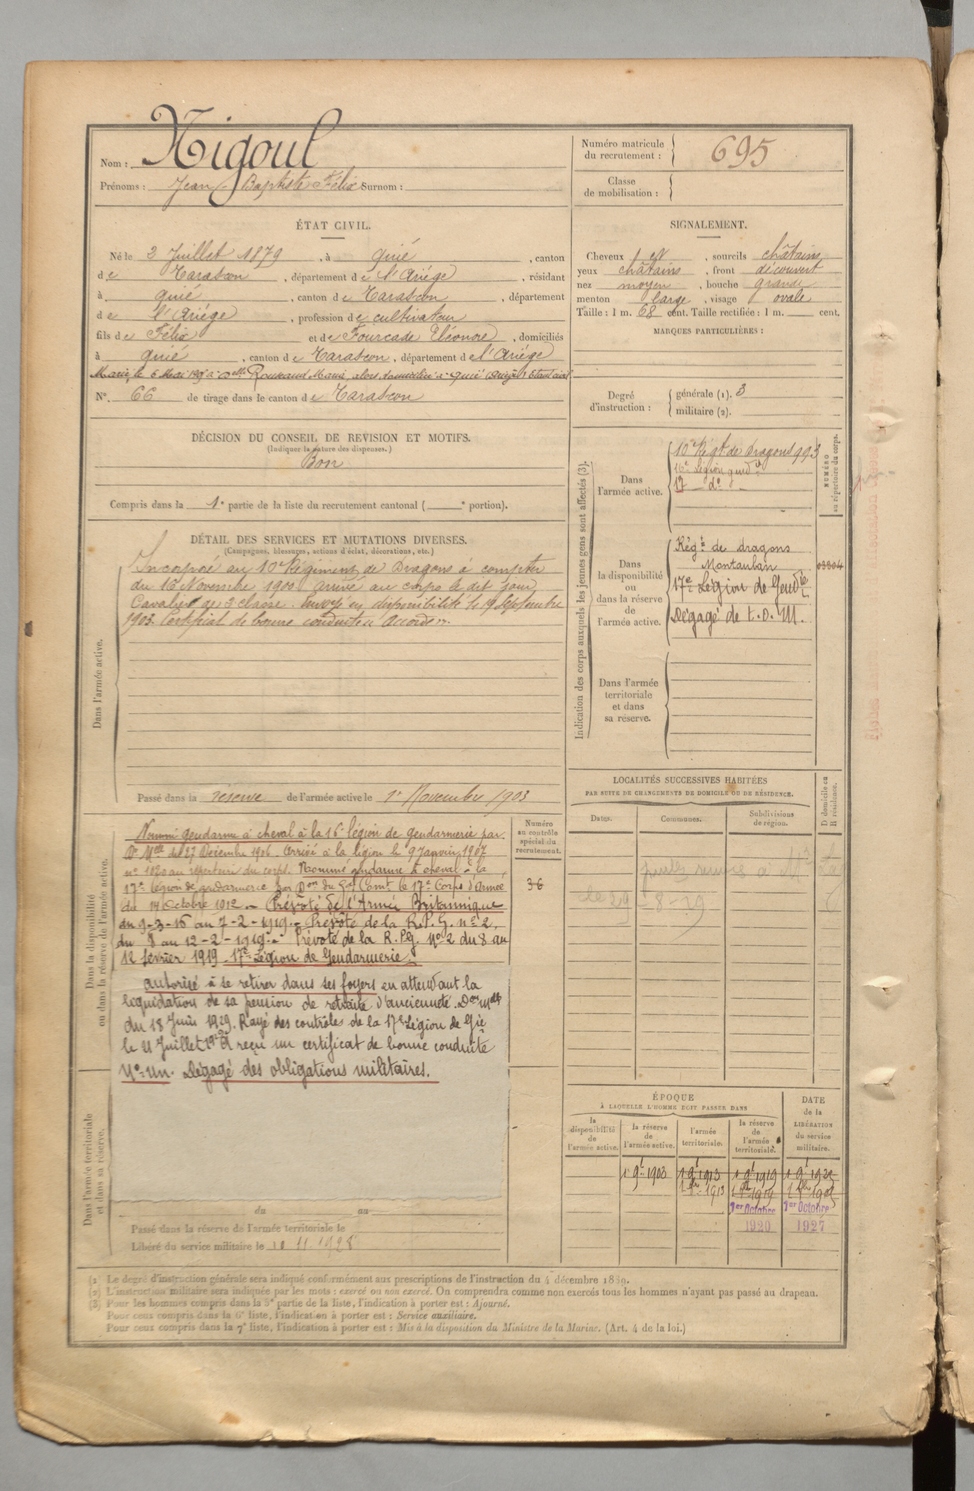 Nom : Nigoul
Prénoms : Jean Baptiste Félix Surnom :
Numéro matricule du recrutement : 695
Classe de mobilisation :
ÉTAT CIVIL.
Né le 3 Juillet 1879, à quié, canton
de Tarascon, département de l'Ariége, résidant
à quié, canton de Tarascon, département
de l'Ariége, profession de cultivateur
fils de Félix et de Fourcade Eléonore, domiciliés
à quié, canton de Tarascon, département de l'Ariége
Marié le 6 Mai à Delle Rouzaud Marie, alors domiciliée à quié
N°. 66 de tirage dans le canton de Tarascon
SIGNALEMENT.
Cheveux et, sourcils châtains
yeux châtains, front découvert
nez moyen, bouche grande
menton large, visage ovale
Taille : 1 m. 68 cent. Taille rectifiée : 1 m. cent.
MARQUES PARTICULIÈRES :
Degré d'instruction : générale (1). 3
militaire (2).
DÉCISION DU CONSEIL DE REVISION ET MOTIFS.
(Indiquer la nature des dispenses.)
Bon
Compris dans la 1e partie de la liste du recrutement cantonal ( e portion).
DÉTAIL DES SERVICES ET MUTATIONS DIVERSES.
(Campagnes, blessures, actions d'éclat, décorations, etc.)
Dans l'armée active.
Incorporé au 10e Régiment de Dragons à compter
du 16 Novembre 1900 arrivé au corps le dit jour
Cavalier de 2e classe. Envoyé en disponibilité le 9 Septembre
1903. Certificat de bonne conduite accordé.
Passé dans la réserve de l'armée active le 1er Novembre 1903
Indication des corps auxquels les jeunes gens sont affectés (3).
NUMÉRO au répertoire du corps.
Dans l'armée active.
10e Régt de Dragons 993
16e Légion gend
17 - do -
Dans la disponibilité ou dans la réserve de l'armée active.
Régt de dragons
Montauban 03304
17e Légion de Gendie
Dégagé de t. o. M.
Dans l'armée territoriale et dans sa réserve.
LOCALITÉS SUCCESSIVES HABITÉES
PAR SUITE DE CHANGEMENTS DE DOMICILE OU DE RÉSIDENCE.
Dates.
Communes.
Subdivisions de région.
D domicile ou R résidence.
le 29-8-29
Dans la disponibilité ou dans la réserve de l'armée active.
Numéro au contrôle spécial du recrutement.
36
Nommé gendarme à cheval à la 16e légion de gendarmerie par
Don Melle du 27 Décembre 1906. Arrivé à la légion le 9 Janvier 1907
n° 1820 au répertoire du corps. Nommé gendarme à cheval à la
17e légion de gendarmerie par Don du Gal Comt le 17e Corps d'Armée
du 14 Octobre 1912. - Prévôté de l'Armée Britannique
du 9-3-16 au 7-2-1919. - Prévôté de la R.P.G. n° 2,
du 8 au 12-2-1919. - Prévôté de la R.P.G. N° 2 du 8 au
12 février 1919 - 17e Légion de Gendarmerie.
autorisé à se retirer dans ses foyers en attendant la
liquidation de sa pension de retraite d'ancienneté. Don Melle
du 18 Juin 1929. Rayé des contrôles de la 17e Légion de Gie
le 11 Juillet 1929 a reçu un certificat de bonne conduite
N° un. Dégagé des obligations militaires.
Dans l'armée territoriale et dans sa réserve.
du au
Passé dans la réserve de l'armée territoriale le
Libéré du service militaire le 10 11 1928
ÉPOQUE
À LAQUELLE L'HOMME DOIT PASSER DANS
la disponibilité de l'armée active.
la réserve de l'armée active.
l'armée territoriale.
la réserve de l'armée territoriale.
DATE de la LIBÉRATION du service militaire.
1 9bre 1903
1 9bre 1913
1 9bre 1919
1er Octobre 1920
1er Octobre 1927
(1) Le degré d'instruction générale sera indiqué conformément aux prescriptions de l'instruction du 4 décembre 1889.
(2) L'instruction militaire sera indiquée par les mots : exercé ou non exercé. On comprendra comme non exercés tous les hommes n'ayant pas passé au drapeau.
(3) Pour les hommes compris dans la 5e partie de la liste, l'indication à porter est : Ajourné.
Pour ceux compris dans la 6e liste, l'indication à porter est : Service auxiliaire.
Pour ceux compris dans la 7e liste, l'indication à porter est : Mis à la disposition du Ministre de la Marine. (Art. 4 de la loi.)